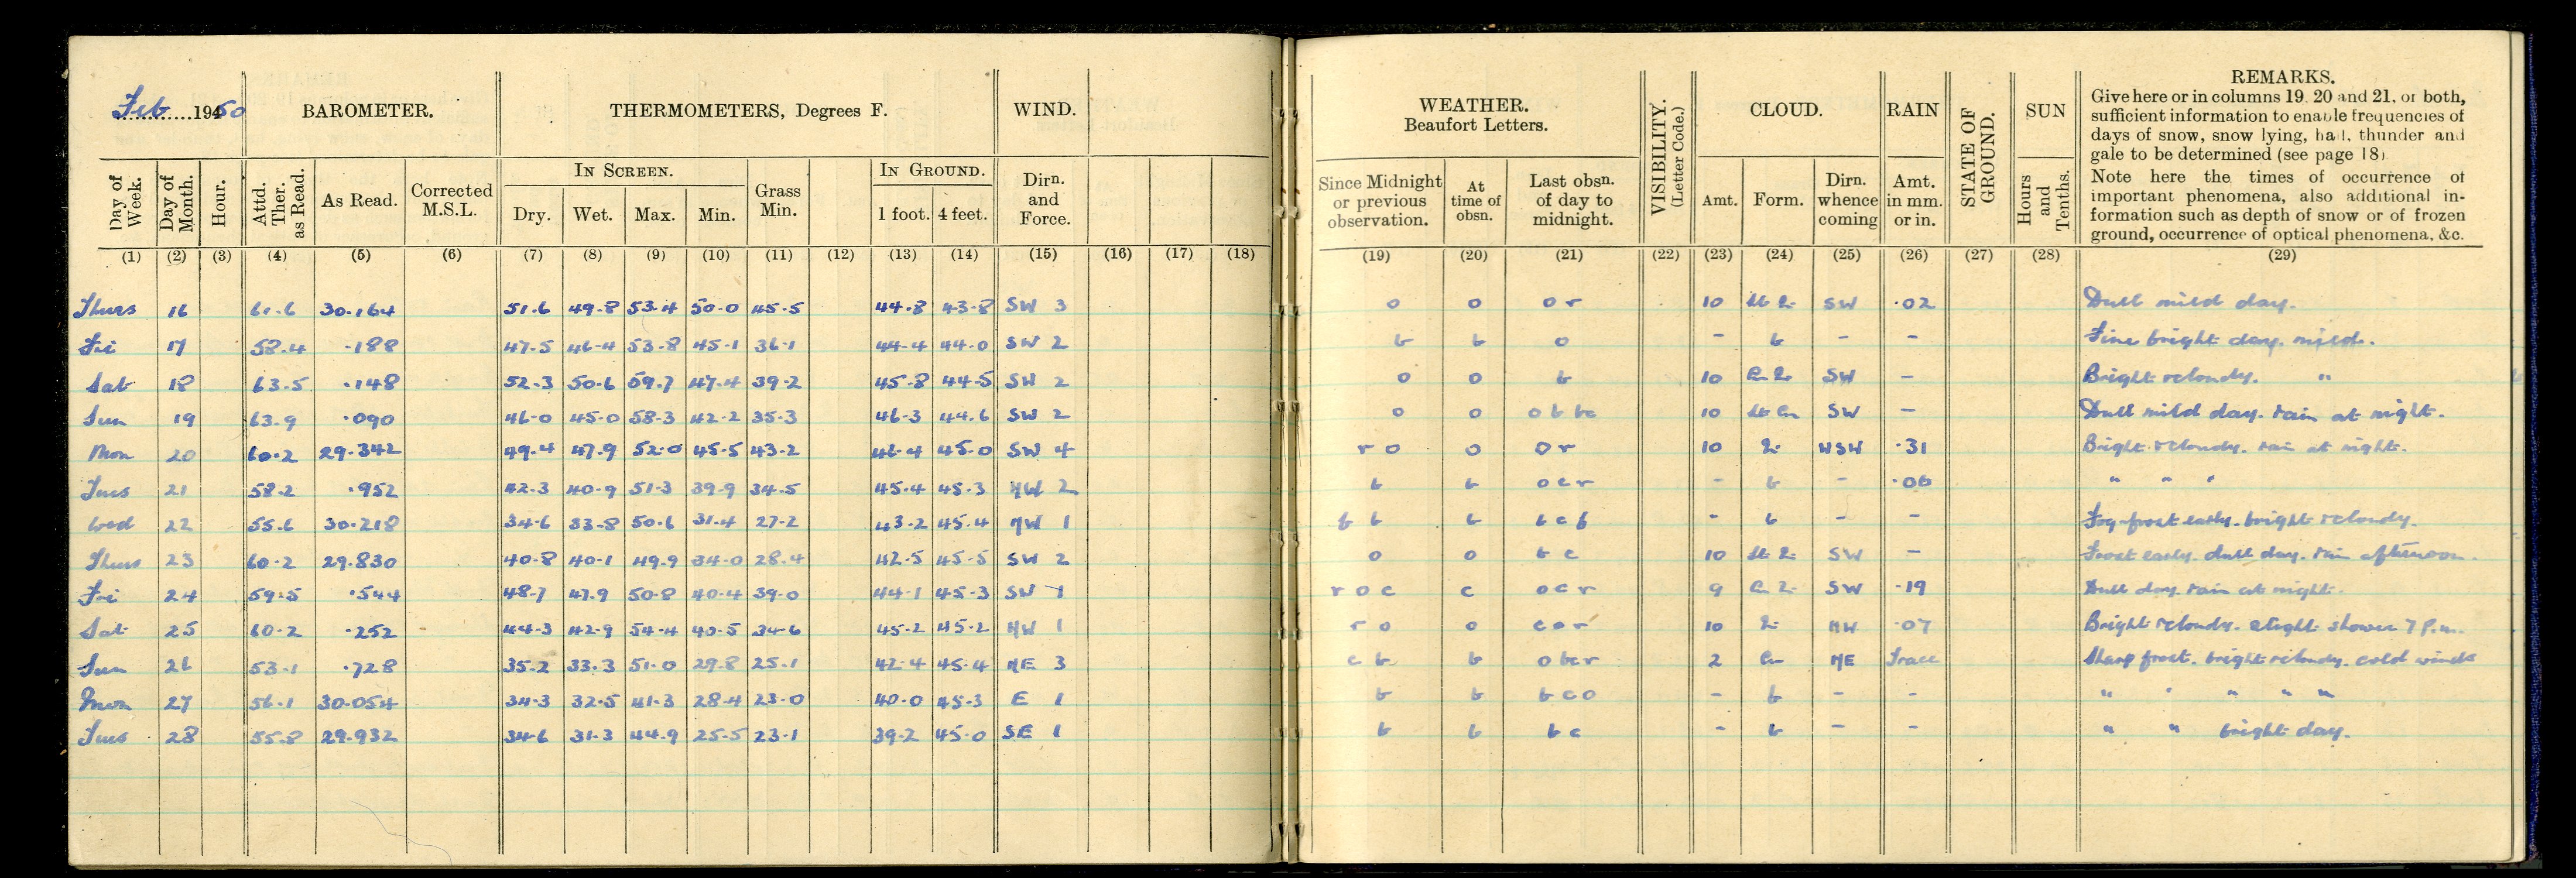 Feb 1950
BAROMETER.
THERMOMETERS, Degrees F.
WIND.
WEATHER.
Beaufort Letters.
VISIBILITY.
(Letter Code.)
CLOUD.
RAIN
STATE OF
GROUND.
SUN
REMARKS.
Give here or in columns 19, 20 and 21, or both,
sufficient information to enable frequencies of
days of snow, snow lying, hail, thunder and
gale to be determined (see page 18)
Note here the times of occurrence of
important phenomena, also additional in-
formation such as depth of snow or of frozen
ground, occurrence of optical phenomena, &c.
Day of Week. Day of Month. Hour. Attd. Ther. as Read. As Read. Corrected M.S.L. IN SCREEN. Dry. Wet. Max. Min. Grass Min. IN GROUND. 1 foot. 4 feet. Dirn. and Force. Since Midnight or previous observation. At time of obsn. Last obsn. of day to midnight. Amt. Form. Dirn. whence coming Amt. in mm. or in. Hours and Tenths.
(1) (2) (3) (4) (5) (6) (7) (8) (9) (10) (11) (12) (13) (14) (15) (16) (17) (18) (19) (20) (21) (22) (23) (24) (25) (26) (27) (28) (29)
Thurs 16 61.6 30.164 51.6 49.8 53.4 50.0 45.5 44.8 43.8 SW 3 o o o r 10 SW .02 Dull mild day.
Fri 17 58.4 .188 47.5 46.4 53.8 45.1 36.1 44.4 44.0 SW 2 b b o - b - - Fine bright day. mild.
Sat 18 63.5 .148 52.3 50.6 59.7 47.4 39.2 45.8 44.5 SW 2 o o b 10 SW - Bright & cloudy. "
Sun 19 63.9 .090 46.0 45.0 58.3 42.2 35.3 46.3 44.6 SW 2 o o o b bc 10 SW - Dull mild day. rain at night.
Mon 20 60.2 29.342 49.4 47.9 52.0 45.5 43.2 46.4 45.0 SW 4 r o o o r 10 WSW .31 Bright & cloudy. rain at night.
Tues 21 58.2 .952 42.3 40.9 51.3 39.9 34.5 45.4 45.3 NW 2 b b o c r - b - .06 " " "
Wed 22 55.6 30.218 34.6 33.8 50.6 31.4 27.2 43.2 45.4 NW 1 f b b b c f - b - - Fog-frost early. bright & cloudy.
Thurs 23 60.2 29.830 40.8 40.1 49.9 34.0 28.4 42.5 45.5 SW 2 o o b c 10 SW - Frost early. dull day. rain afternoon.
Fri 24 59.5 .544 48.7 47.9 50.8 40.4 39.0 44.1 45.3 SW 1 r o c c o c r 9 SW .19 Dull day. rain at night.
Sat 25 60.2 .252 44.3 42.9 54.4 40.5 34.6 45.2 45.2 NW 1 r o o c o r 10 NW .07 Bright & cloudy. slight shower 7 P.m.
Sun 26 53.1 .728 35.2 33.3 51.0 29.8 25.1 42.4 45.4 NE 3 c b b o bc r 2 NE Trace Sharp frost. bright & cloudy. cold winds
Mon 27 56.1 30.054 34.3 32.5 41.3 28.4 23.0 40.0 45.3 E 1 b b b c o - b - - " " " " "
Tues 28 55.8 29.932 34.6 31.3 44.9 25.5 23.1 39.2 45.0 SE 1 b b b c - b - - " " bright day.